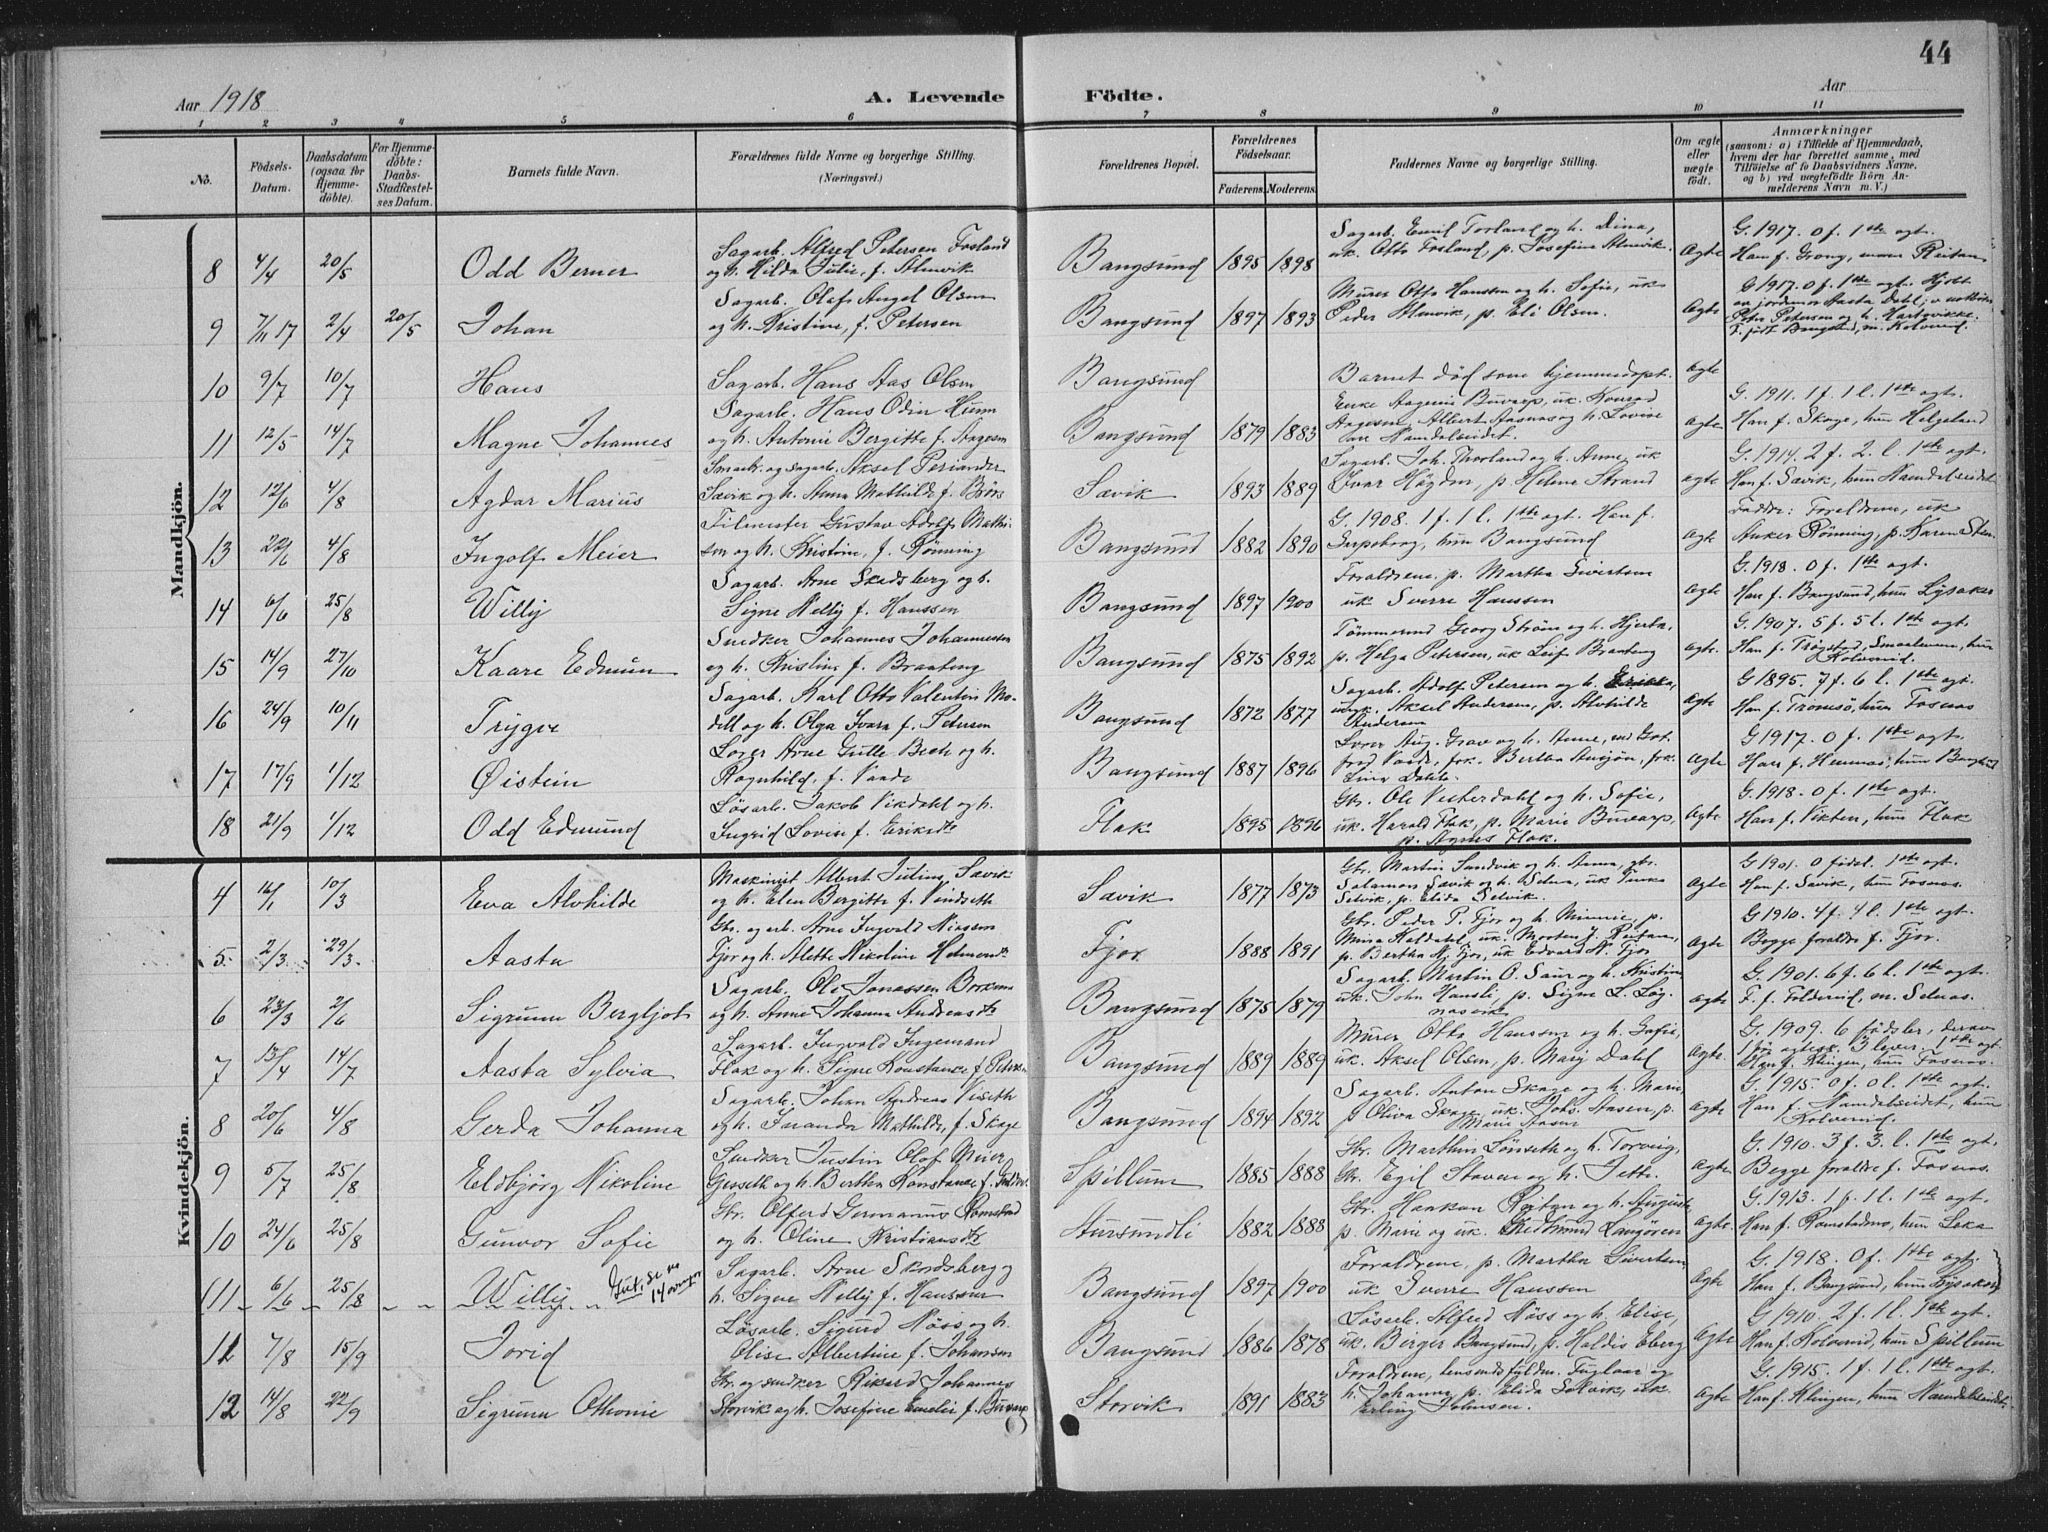 44
Aar 1918
A. Levende Födte.
Aar
1 2 3 4 5 6 7 8 9 10 11
No.
Födsels-Datum.
Daabsdatum (ogsaa for Hjemmedöbte).
For Hjemmedöbte: Daabs-Stadfæstelses Datum.
Barnets fulde Navn.
Forældrenes fulde Navne og borgerlige Stilling. (Næringsvei.)
Forældrenes Bopæl.
Forældrenes Födselsaar.
Faderens. Moderens.
Faddernes Navne og borgerlige Stilling.
Om ægte eller uægte födt.
Anmærkninger (saasom: a) i Tilfælde af Hjemmedaab, hvem der har forrettet samme, med Tilföielse af to Daabsvidners Navne. og b) ved uægtefödte Börn Anmelderens Navn m. V.)
Mandkjön.
8 4/4 20/5 Odd Berner Sagarb. Alfred Petersen Fosland og h. Hilda Julie, f. Almvik Bangsund 1895 1898 Sagarb. Emil Forland og h. Dina, uk. Otto Fosland, p. Josefine Almvik. Ægte G. 1917. 0 f. 1ste egt. Han f. Grong, moren Reitan
9 7/11 17 2/4 20/5 Johan Sagarb. Olaf Angel Olsen og h. Kristine, f. Petersen Bangsund 1897 1893 Murer Otto Hanssen og h. Sofie, uk Peder Almvik, p. Eli Olsen. Ægte G. 1917. 0 f. 1ste egt. Hjdbt av jordemor Aasta Dahl; Peter Petersen og h.
10 9/7 10/7 Hans Sagarb. Hans Aas Olsen Bangsund Barnet död som hjemmedöpt. Ægte
11 12/5 14/7 Magne Johannes Sagarb. Hans Odin Humm og h. Antonie Bergitte f. Aagesen Bangsund 1879 1883 Enke Aagesen Buvarp, uk. Konrad Aagesen, Albert Aasnæs og h. Lovise Namdalseidet. Ægte G. 1911. 1 f. 1 l. 1ste egt. Han f. Skage, hun Helgeland
12 12/6 4/8 Agdar Marius Smaabr. og sagarb. Aksel Periander Sævik og h. Anna Mathilde f. Börs Sævik 1893 1889 Sagarb. Joh. Thorland og h. Anne, uk Ivar Högden, p Helene Strand Ægte G. 1914. 2 f. 2. l. 1ste egt. Han f. Sævik, hun Namdalseidet
13 22/6 4/8 Ingolf Meier Filmester Gustav Adolf Mathisen og h. Kristine, f. Rönning Bangsund 1882 1890 G. 1908. 1 f. 1 l. 1ste egt. Han f. hun Bangsund Ægte Faddre: Foreldrene, uk Anker Rönning, p. Karen
14 6/6 25/8 Willy Sagarb. Arne Skedsberg og h. Signe Nelly f. Hanssen Bangsund 1897 1900 Foreldrene. p. Martha Sivertsen uk Sverre Hanssen Ægte G. 1918. 0 f. 1ste egt. Han f. Bangsund, hun Lysaker
15 14/9 27/10 Kaare Edmun Snedker Johannes Johannessen og h. Kristine f. Brauteng Bangsund 1875 1892 Tömmermd Georg Ström og h. Hjerta, p. Helga Petersen, uk Leif Brauteng Ægte. G. 1907. 5 f. 5 l. 1ste egt. Han f. Trögstad, Smaalenene, hun Kolvereid.
16 24/9 10/11 Trygve Sagarb. Karl Otto Valentin Modell og h. Olga Ivara f. Petersen Bangsund 1872 1877 Sagarb. Adolf Petersen og h. Erikka, uk. Aksel Andersen, p. Alvhilde Andersen Ægte G 1895. 7 f. 6 l. 1ste egt. Han f. Tromsö, hun Fosnes
17 17/9 1/12 Öistein Lærer Arne Gulle Bech og h. Ragnhild, f. Vaade Bangsund 1887 1896 Lærer Aug. Grav og h. Anne, frk. Bertha frk. Lina Dahle. Ægte G. 1917. 0 f. 1ste egt. Han f. Hemnes, hun Bangsund
18 21/9 1/12 Odd Edmund Lösarb. Jakob Vikdahl og h. Ingrid Lovise f. Eriksdt Flak 1895 1896 Gbr. Ole Vesterdahl og h. Sofie, uk. Harald Flak, p. Marie Buvarp, p. Agnes Flak. Ægte G. 1918. 0 f. 1ste egt. Han f. Vikten, hun Flak
Kvindekjön.
4 16/1 10/3 Eva Alvhilde Maskinist Albert Julius Sævik og h. Elen Bergitte f. Vindseth Sævik 1877 1873 Gbr. Martin Sandvik og h. Anna, gbr. Salamon Sævik og h. Selma, uk Selvik, p. Elida Selvik. Ægte G 1901. 0 födsl. 1ste egt. Han f. Sævik, hun Fosnes.
5. 2/3 29/3 Aasta Gbr. og arb. Arne Ingvald Nilssen Fjor og h. Alette Nikoline Fjor 1888 1891 Gbr. Peder P. Fjor og h. Minnie, p. Mina Kaldahl, uk. Morten J. Reitan, p. Bertha N. Fjor, uk Edvard N. Fjor Ægte G. 1910. 4 f. 4 l. 1ste egt. Begge foreldre f. Fjor.
6 23/3 2/6 Sigrunn Bergljot Sagarb. Ole Jonassen og h. Anne Johanna Andreasdt Bangsund 1875 1879 Sagarb. Martin O. Saur og h. Kristine uk. John Hansli, p. Signe L. Lögnesvik. Ægte G. 1901. 6 f. 6 l. 1ste egt. F. f. Foldereid, m. Selnes.
7 13/4 14/7 Aasta Sylvia Sagarb. Ingvald Ingemand Flak og h. Signe Konstance f. Petersen Bangsund 1889 1889 Murer Otto Hanssen og h. Sofie, uk. Aksel Olsen, p. Mary Dahl Ægte. G. 1909. 6 födsler, derav 1 för egtesk. 3 lever. 1ste egt. Han f. Klingen, hun Fosnes.
8 20/6 4/8 Gerda Johanna Sagarb. Johan Andreas Viseth og h. Faranda Mathilde, f. Skage Bangsund 1894 1892 Sagarb. Anton Skage og h. Marie, p Oliva Skage, uk. Johs. Aasen, p. Marie Aasen Ægte G. 1915. 0 f. 0 l. 1ste egt. Han f. Namdalseidet, hun Kolvereid.
9 5/7 25/8 Eldbjörg Nikoline Snedker Justin Olof Meier Gysseth og h. Bertha Konstance f. Spillum 1885 1888 Gbr. Marthin Lönseth og h. Torvig, Gbr. Egil Staven og h. Jette Ægte G. 1910. 3 f. 3. l. 1ste egt. Begge foreldre f. Fosnes.
10 24/6 25/8 Gunvor Sofie Gbr. Olferd Germanus Romstad og h. Oline Kristiansdt Aursundli 1882 1888 Gbr. Haakan Reitan og h. Auguste, p. Marie og uk. Langören Ægte. G. 1913. 1 f. 1 l. 1ste egt. Han f. Romstadmo, hun Leka
(11 6/6 25/8 Willy Gut, se no 14 ovenfor Sagarb. Arne Skedsberg og h. Signe Nelly f. Hanssen Bangsund 1897 1900 Foreldrene, p. Martha Sivertsen, uk Sverre Hanssen Ægte G. 1918. 0 f. 1ste egt. Han f. Bangsund, hun Lysaker)
11 7/8 15/9 Torid Lösarb. Sigurd Näss og h. Olise Albertine f. Johansen Bangsund 1886 1878 Lösarb. Alfred Näss og h. Elise, uk. Birger Bangsund, p. Haldis Eberg Ægte G. 1910. 2 f. 1 l. 1ste egt. Han f. Kolvereid, hun Spillum
12 14/8 22/9 Sigrunn Othonie Gbr. og snedker Rikard Johannes Storvik og h. Josefine Emelie f. Buvarp Storvik 1891 1883 Foreldrene, Fuglaar og h. Johanne, p. Elida Solvik, uk. Erling Johnsen. Ægte G. 1915. 1 f. 1 l. 1ste egt. Han f. Klingen, hun Namdalseidet